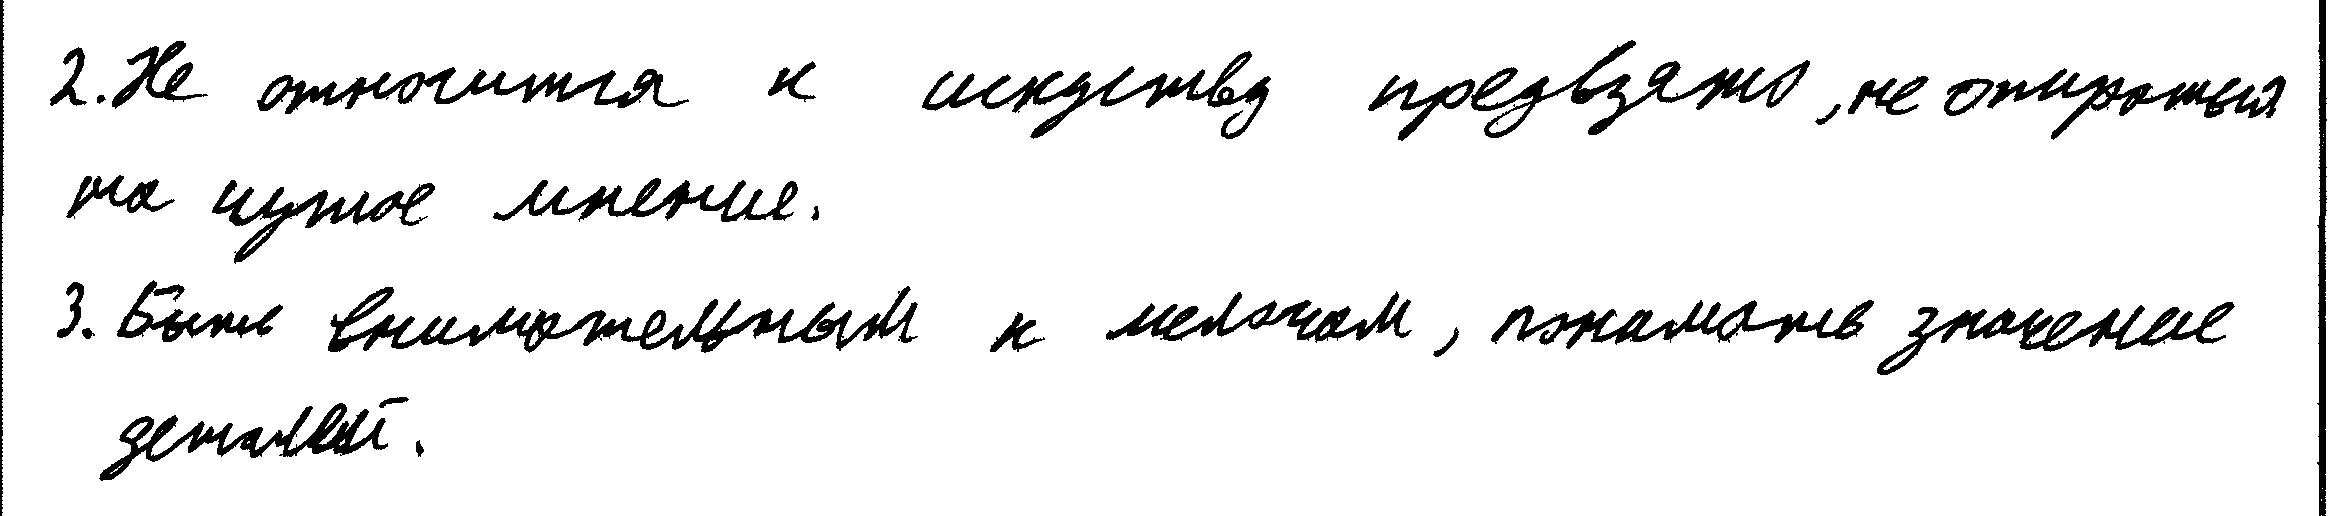 2. Не относится к искуству предвзято, не опираться
на чужое мнение.
3. Быть внимательным к мелочам, понимать значение
деталей.